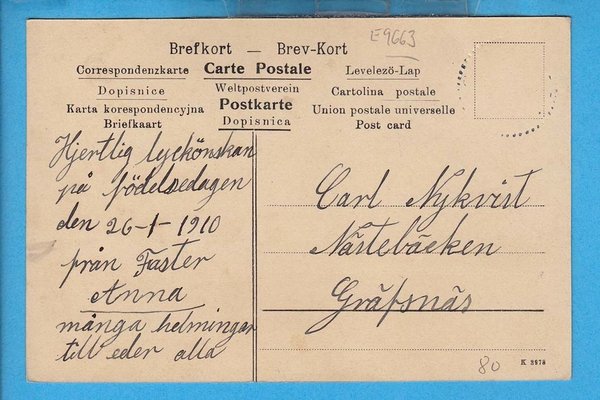 E9663
Brefkort — Brev-Kort
Correspondenzkarte Carte Postale Levelező-Lap
Dopisnice Weltpostverein Cartolina postale
Karta korespondencyjna Postkarte Union postale universelle
Briefkaart Dopisnica Post card
Hjertlig lyckönskan
på födelsedagen
den 26-1-1910
från Faster
Anna
många helningar
till eder alla
Carl Nykvist
Nästebäcken
Gräfsnäs
80
K 3978